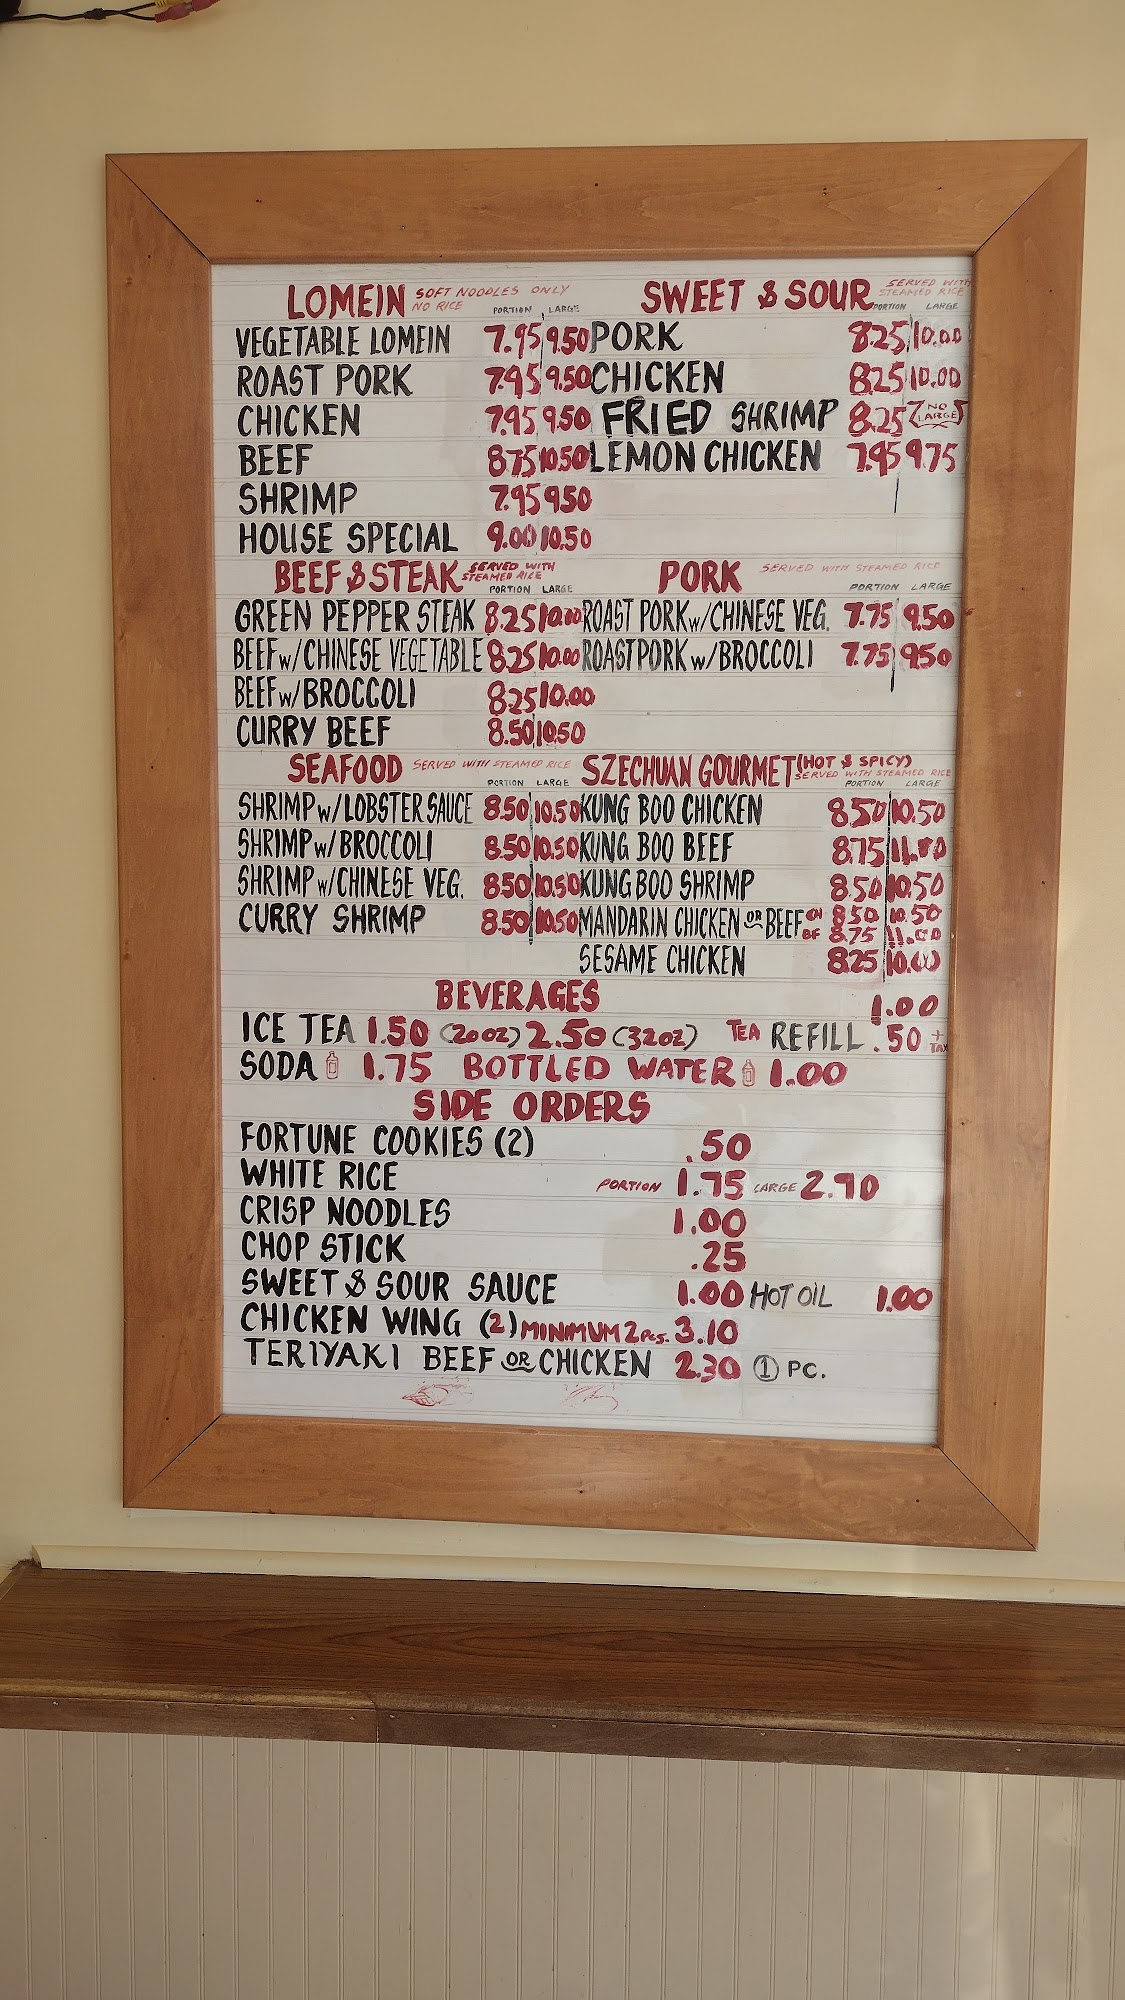 LOMEIN SOFT NOODLES ONLY
NO RICE PORTION LARGE
VEGETABLE LOMEIN 7.95 9.50
ROAST PORK 7.95 9.50
CHICKEN 7.95 9.50
BEEF 8.75 10.50
SHRIMP 7.95 9.50
HOUSE SPECIAL 9.00 10.50
SWEET & SOUR SERVED WITH
STEAMED RICE
PORTION LARGE
PORK 8.25 10.00
CHICKEN 8.25 10.00
FRIED SHRIMP 8.25 NO LARGE
LEMON CHICKEN 7.95 9.75
BEEF & STEAK SERVED WITH
STEAMED RICE
PORTION LARGE
GREEN PEPPER STEAK 8.25 10.00
BEEF w/CHINESE VEGETABLE 8.25 10.00
BEEF w/BROCCOLI 8.25 10.00
CURRY BEEF 8.50 10.50
PORK SERVED WITH STEAMED RICE
PORTION LARGE
ROAST PORK w/CHINESE VEG. 7.75 9.50
ROAST PORK w/BROCCOLI 7.75 9.50
SEAFOOD SERVED WITH STEAMED RICE
PORTION LARGE
SHRIMP w/LOBSTER SAUCE 8.50 10.50
SHRIMP w/BROCCOLI 8.50 10.50
SHRIMP w/CHINESE VEG. 8.50 10.50
CURRY SHRIMP 8.50 10.50
SZECHUAN GOURMET (HOT & SPICY)
SERVED WITH STEAMED RICE
PORTION LARGE
KUNG BOO CHICKEN 8.50 10.50
KUNG BOO BEEF 8.75 11.00
KUNG BOO SHRIMP 8.50 10.50
MANDARIN CHICKEN OR BEEF CH 8.50 10.50
BF 8.75 11.00
SESAME CHICKEN 8.25 10.00
BEVERAGES 1.00
ICE TEA 1.50 (20oz) 2.50 (32oz) TEA REFILL .50 + TAX
SODA 1.75 BOTTLED WATER 1.00
SIDE ORDERS
FORTUNE COOKIES (2) .50
WHITE RICE PORTION 1.75 LARGE 2.90
CRISP NOODLES 1.00
CHOP STICK .25
SWEET & SOUR SAUCE 1.00 HOT OIL 1.00
CHICKEN WING (2) MINIMUM 2 Pcs. 3.10
TERIYAKI BEEF OR CHICKEN 2.30 1 PC.